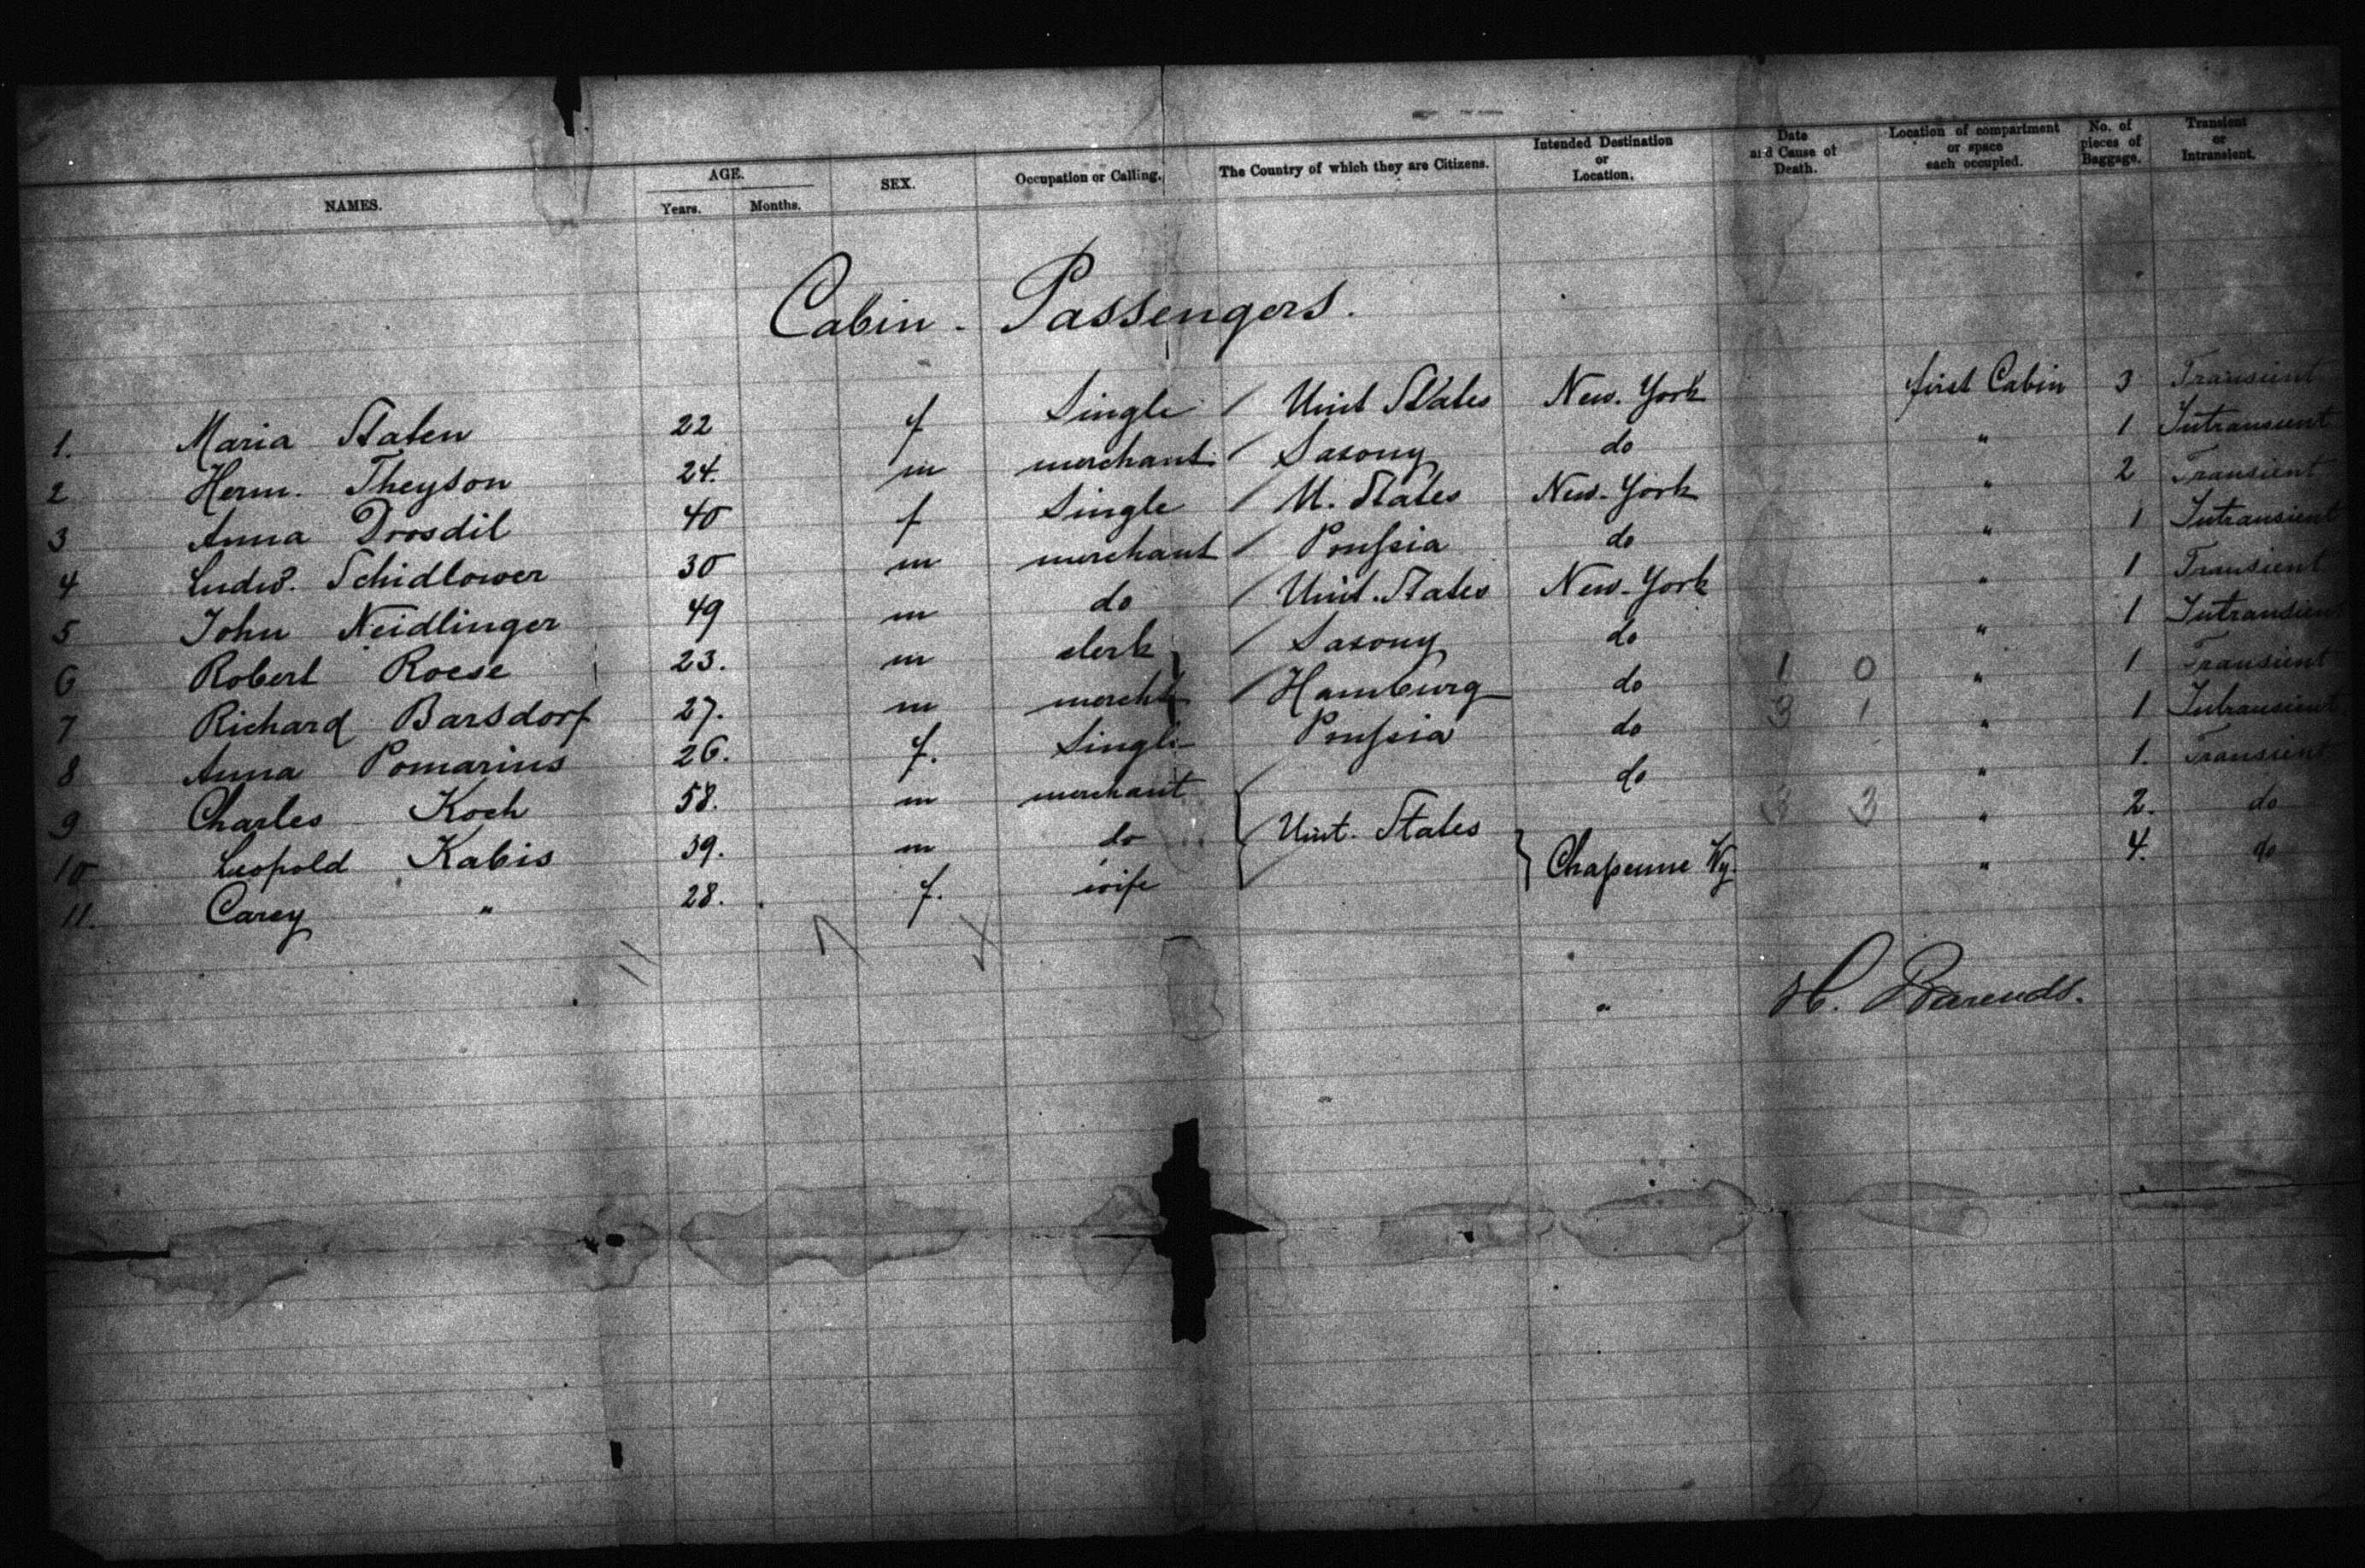 NAMES. AGE. Years. Months. SEX. Occupation or Calling. The Country of which they are Citizens. Intended Destination or Location. Date and Cause of Death. Location of compartment or space each occupied. No. of pieces of Baggage. Transient or Intransient.
Cabin - Passengers.
1. Maria Staten 22 f Single / Unit States New. York first Cabin 3 Transient
2 Herm. Theyson 24. m merchant / Saxony do " 1 Intransient
3 Anna Drosdil 40 f Single / U. States New-York " 2 Transient
4 Ludw. Schidlower 30 m merchant / Preussia do " 1 Intransient
5 John Neidlinger 49 m do / Unit. States New-York " 1 Transient
6 Robert Roese 23. m clerk / Saxony do " 1 Intransient
7 Richard Barsdorf 27. m mercht / Hamburg do 1 0 " 1 Transient
8 Anna Pomarius 26. f. Single Preussia do 3 1 " 1 Intransient
9 Charles Koch 58. m merchant do " 1. Transient
10 Leopold Kabis 39. m do Unit. States 3 3 " 2. do
11. Carey " 28. f. wife Chapenne Wy. " 4. do
11 7 4
H. Barends.